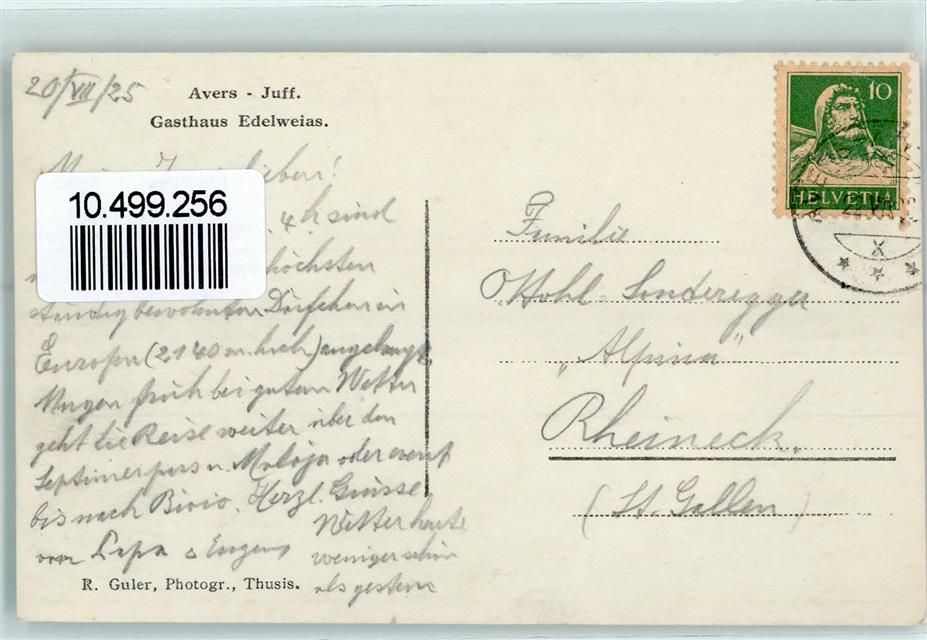 20/VII/25
Avers - Juff.
Gasthaus Edelweias.
lieben!
10.499.256
4 h sind
höchsten
ständig bewohnten Dörfchen in
Europa (2140 m. hoch) angelangt
Morgen früh bei gutem Wetter
geht die Reise weiter über den
Septimerpass u. Maloja oder event.
bis nach Bivio. Herzl. Grüsse
von Papa & Eugen
Wetter heute
weniger schön
als gestern
R. Guler, Photogr., Thusis.
10
HELVETIA
X
Familie
Sonderegger
„Alpina"
Rheineck.
(St. Gallen)